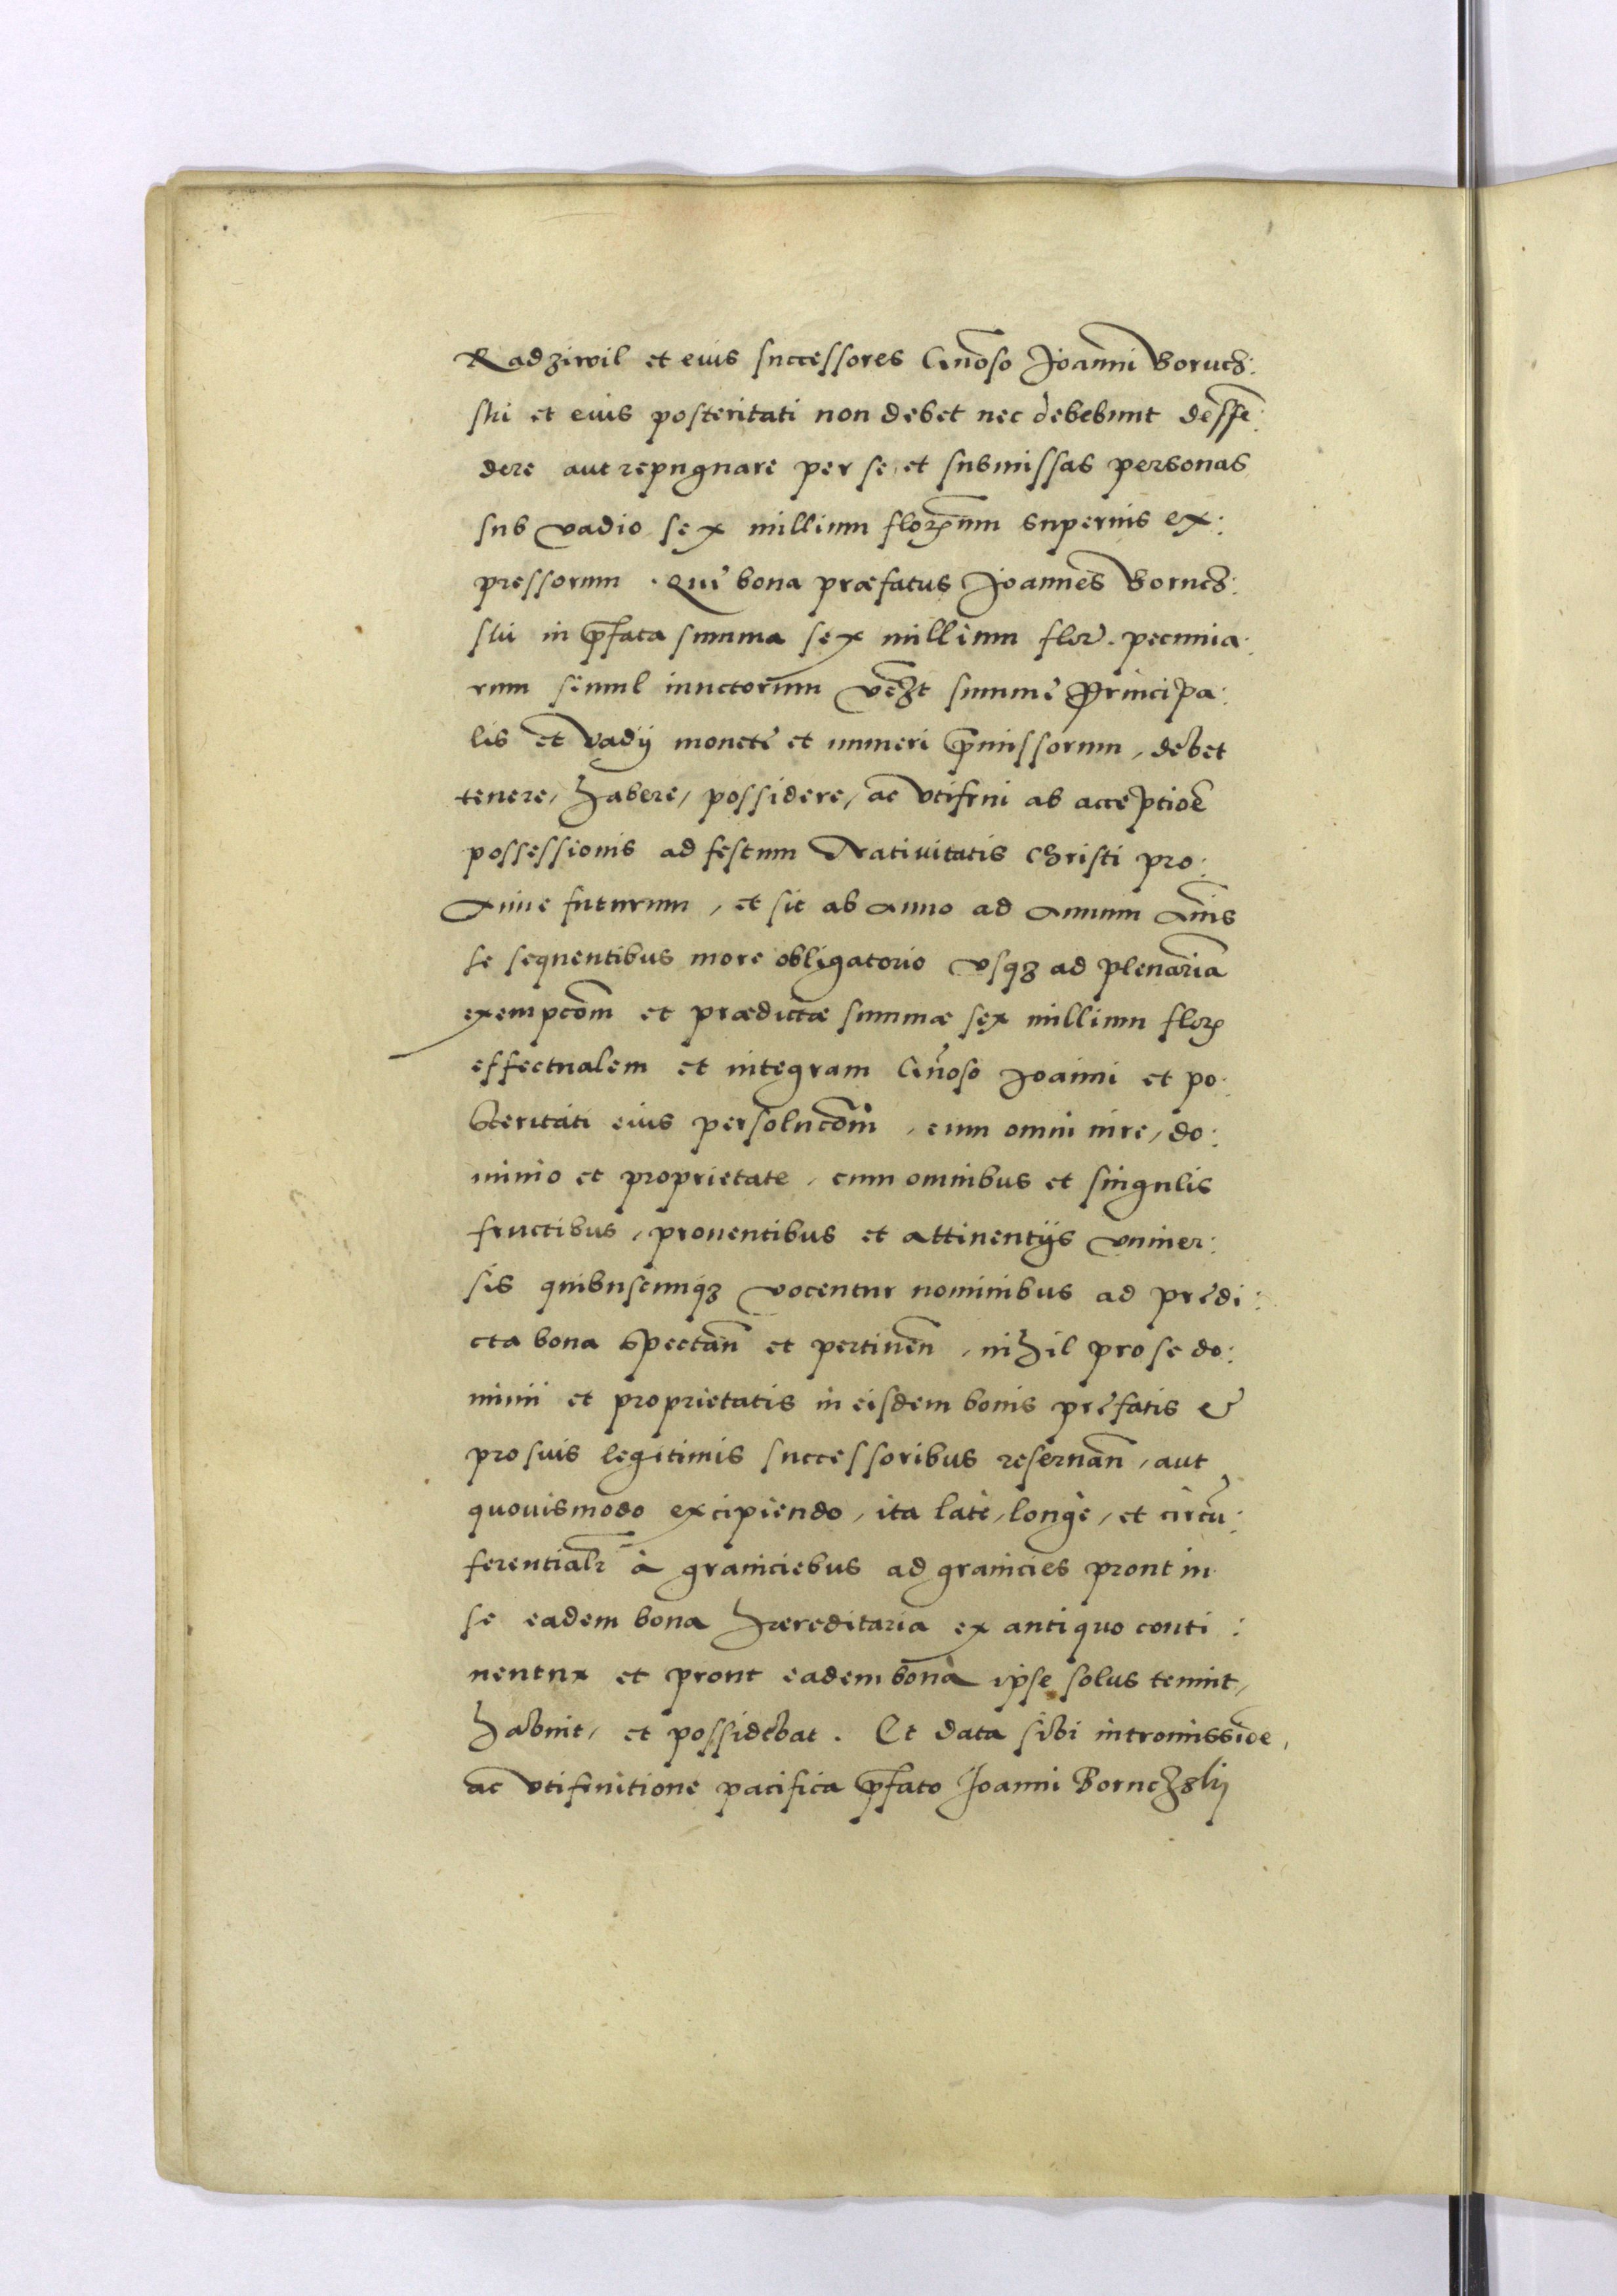 Radziwil et eius successores Gnōso Joanni Boruch:
ski et eius posteritati non debet nec debebunt deffē:
dere aut repugnare per se et submissas personas
sub vadio sex millium florenum superius ex:
pressorum . Quę bona præfatus Joannes Boruch:
ski in p̄fata summa sex millium flor. pecunia:
rum simul iunctorum vc̄zt summę Principa:
lis et vadij monetę et numeri p̄missorum, debet
tenere, habere, possidere, ac vtifrui ab acceptiōe
possessionis ad festum Natiuitatis Christi pro:
xime futurum, et sic ab anno ad annum annis
se sequentibus more obligatorio vsqz ad plenariā
exempcōm et prædictæ summæ sex millium florꝫ
effectualem et integram Gnōso Joanni et po:
steritati eius persolucōm, cum omni iure, do:
minio et proprietate, cum omnibus et singulis
fructibus, prouentibus et attinentijs vniuer:
sis quibuscumqz vocentur nominibus ad prędi:
cta bona spectan̄ et pertinen̄, nihil pro se do:
minii et proprietatis in eisdem bonis pręfatis &
pro suis legitimis successoribus reseruan̄, aut
quouismodo excipiendo, ita late, longe, et circū:
ferentialr̄ à graniciebus ad granicies prout in
se eadem bona hæreditaria ex antiquo conti:
nentur et prout eadem bona ipse solus tenuit,
habuit, et possidebat. Et data sibi intromissiōe,
ac vtifruitione pacifica p̄fato Joanni Boruchskj